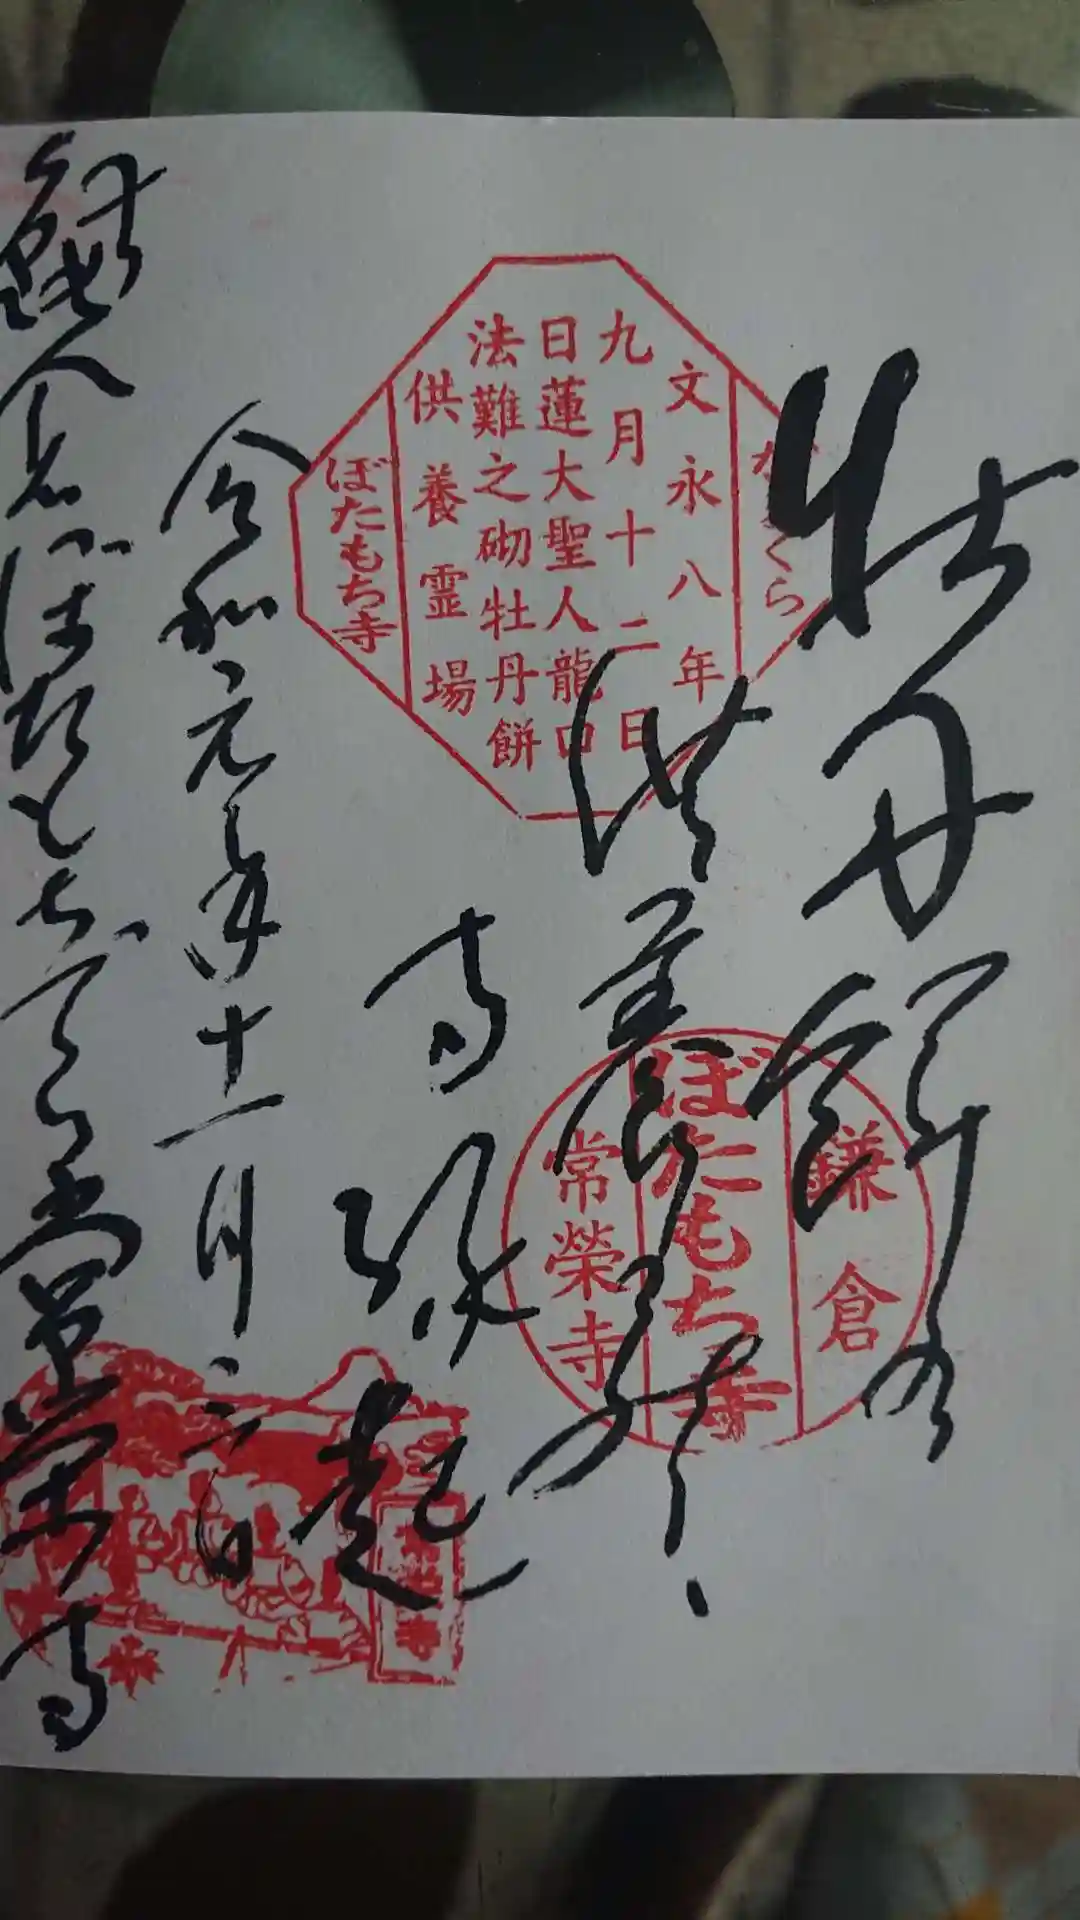 牡丹餅の
供養
寺縁起
令和元年十一月
鎌倉ぼたもち
常栄寺
かまくら
文永八年
九月十二日
日蓮大聖人龍口
法難之砌牡丹餅
供養霊場
ぼたもち寺
鎌倉
ぼたもち寺
常榮寺